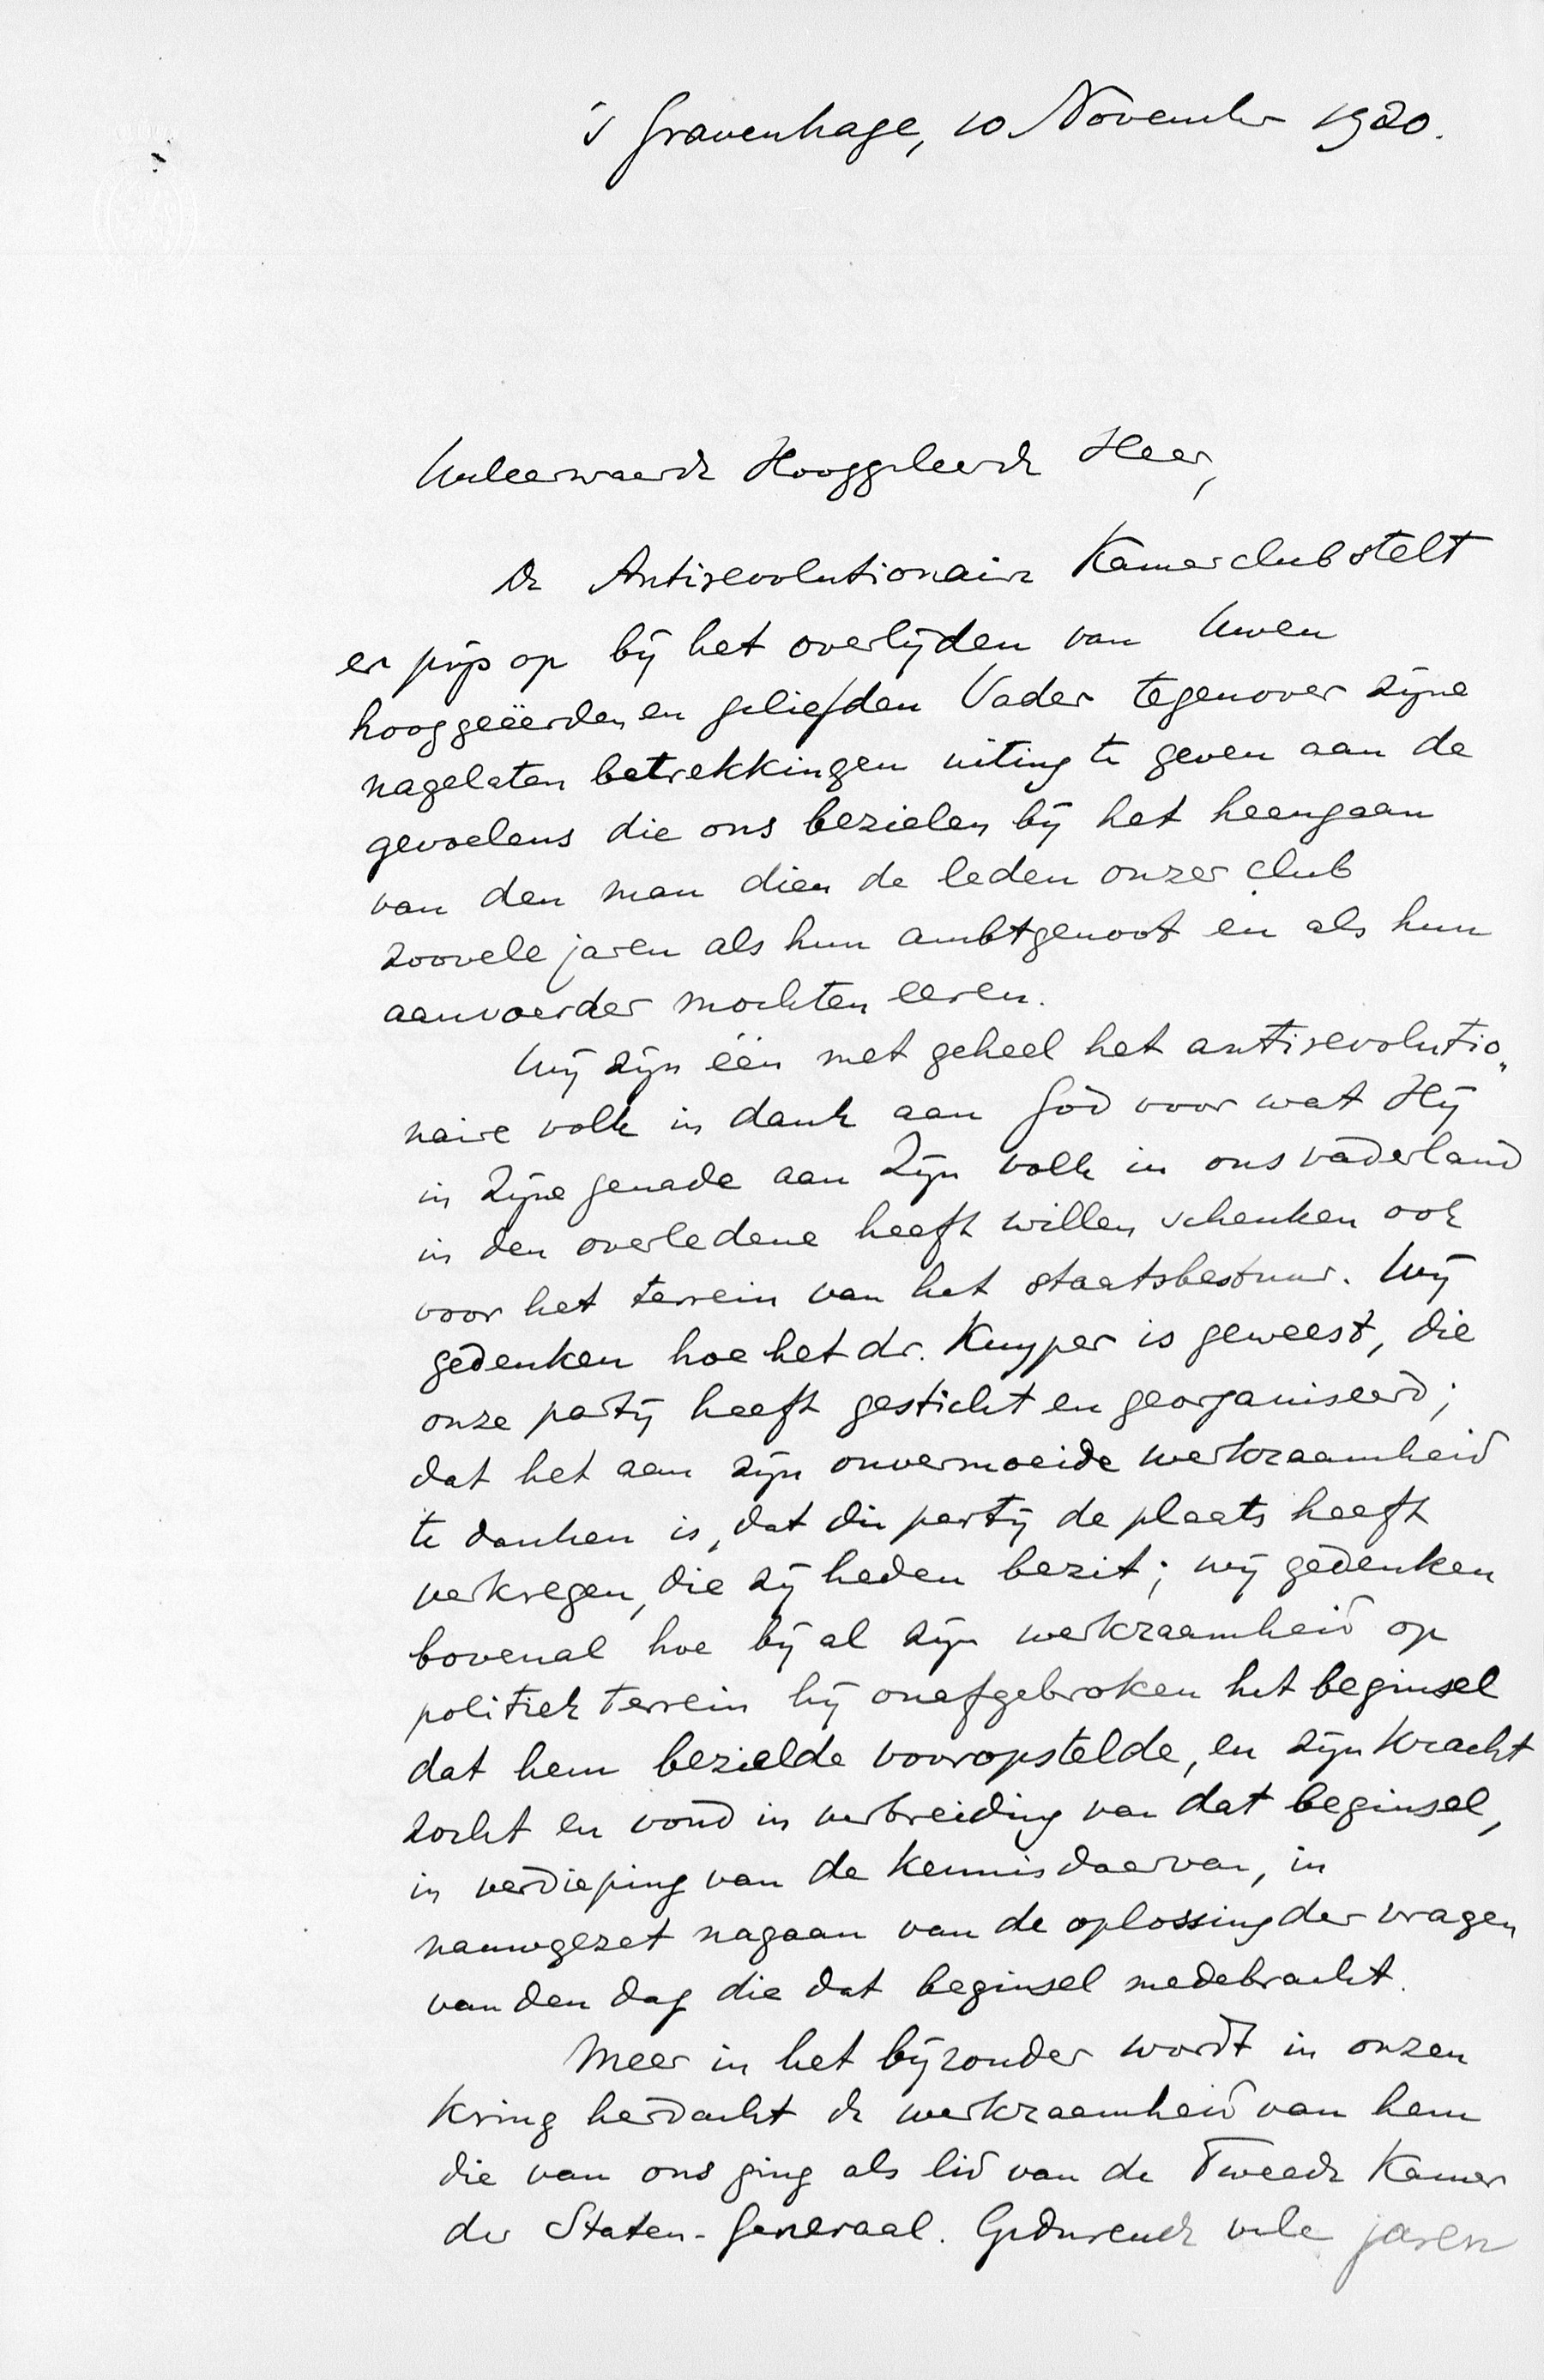 's Gravenhage, 10 November 1920.
Weleerwaarde Hooggeleerde Heer,
De Antirevolutionaire Kamerclub stelt
er prijs op bij het overlijden van Uwen
hooggeëerden en geliefden Vader tegenover zijne
nagelaten betrekkingen uiting te geven aan de
gevoelens die ons bezielen bij het heengaan
van den man dien de leden onzer club
zoovele jaren als hun ambtgenoot en als hun
aanvoerder mochten eeren.
Wij zijn één met geheel het antirevolutio„
naire volk in dank aan God voor wat Hij
in Zijne genade aan Zijn volk in ons vaderland
in den overledene heeft willen schenken ook
voor het terrein van het staatsbestuur. Wij
gedenken hoe het dr. Kuyper is geweest, die
onze partij heeft gesticht en georganiseerd;
dat het aan zijn onvermoeide werkzaamheid
te danken is, dat die partij de plaats heeft
verkregen, die zij heden bezit; wij gedenken
bovenal hoe bij al zijn werkzaamheid op
politiek terrein hij onafgebroken het beginsel
dat hem bezielde vooropstelde, en zijn kracht
zocht en vond in verbreiding van dat beginsel,
in verdieping van de kennis daarvan, in
nauwgezet nagaan van de oplossing der vragen
van den dag die dat beginsel medebracht.
Meer in het bijzonder wordt in onzen
kring herdacht de werkzaamheid van hem
die van ons ging als lid van de Tweede Kamer
der Staten-Generaal. Gedurende vele jaren